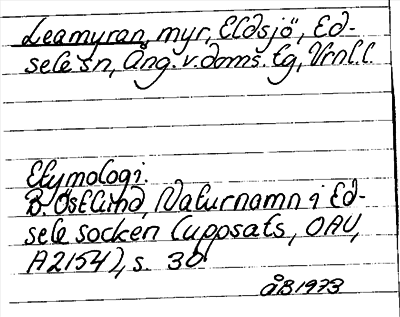 Leamyran, myr, Eldsjö, Ed-
sele sn, Ång. v. doms. tg, Vrnl.l.
Etymologi.
B. Östlind, Naturnamn i Ed-
sele socken (uppsats, OAU,
A2154), s. 30
ÅB 1973